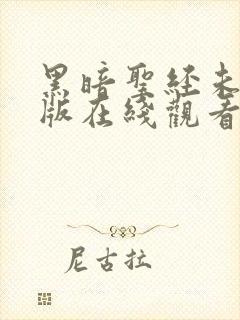 黑暗聖經未
版在綫觀看
尼古拉